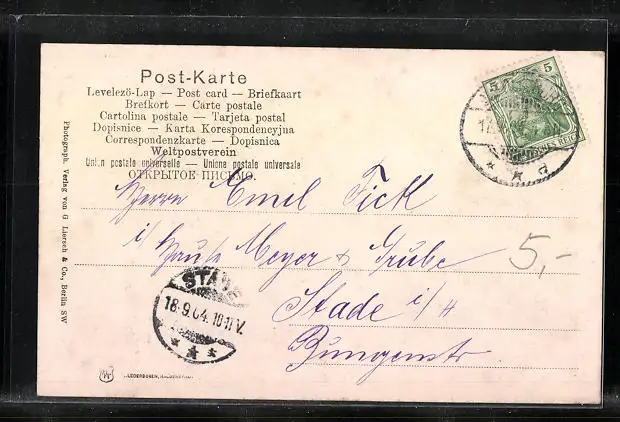 Post-Karte
Levelezö-Lap — Post card — Briefkaart
Brefkort — Carte postale
Cartolina postale — Tarjeta postal
Dopisnice — Karta Korespondencyjna
Correspondenzkarte — Dopisnica
Weltpostverein
Union postale universelle — Unione postale universale
ОТКРЫТОЕ ПИСЬМО.
Photograph. Verlag von G. Liersch & Co., Berlin SW
5 5
REICH
Herrn Emil Fick
i/ Hause Meyer & Grube
5,-
Stade i/H
Bungenstr
STADE
18.9.04. 10-11 V.